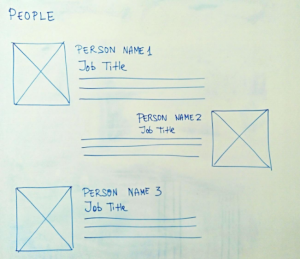 PEOPLE
PERSON NAME 1
Job Title
PERSON NAME 2
Job Title
PERSON NAME 3
Job Title